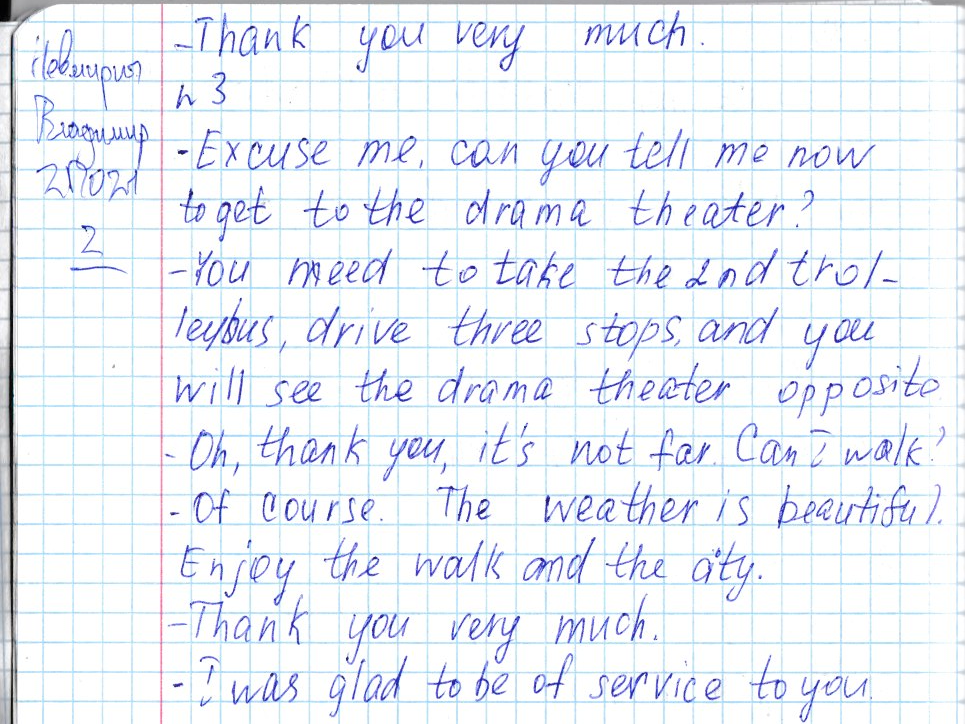 -Thank you very much.
n 3
-Excuse me, can you tell me now
to get to the drama theater?
-You need to take the 2nd trol-
leybus, drive three stops, and you
will see the drama theater opposite
-Oh, thank you, it's not far. Can I walk?
-Of course. The weather is beautiful.
Enjoy the walk and the city.
-Thank you very much.
-I was glad to be of service to you.
Владимир
2